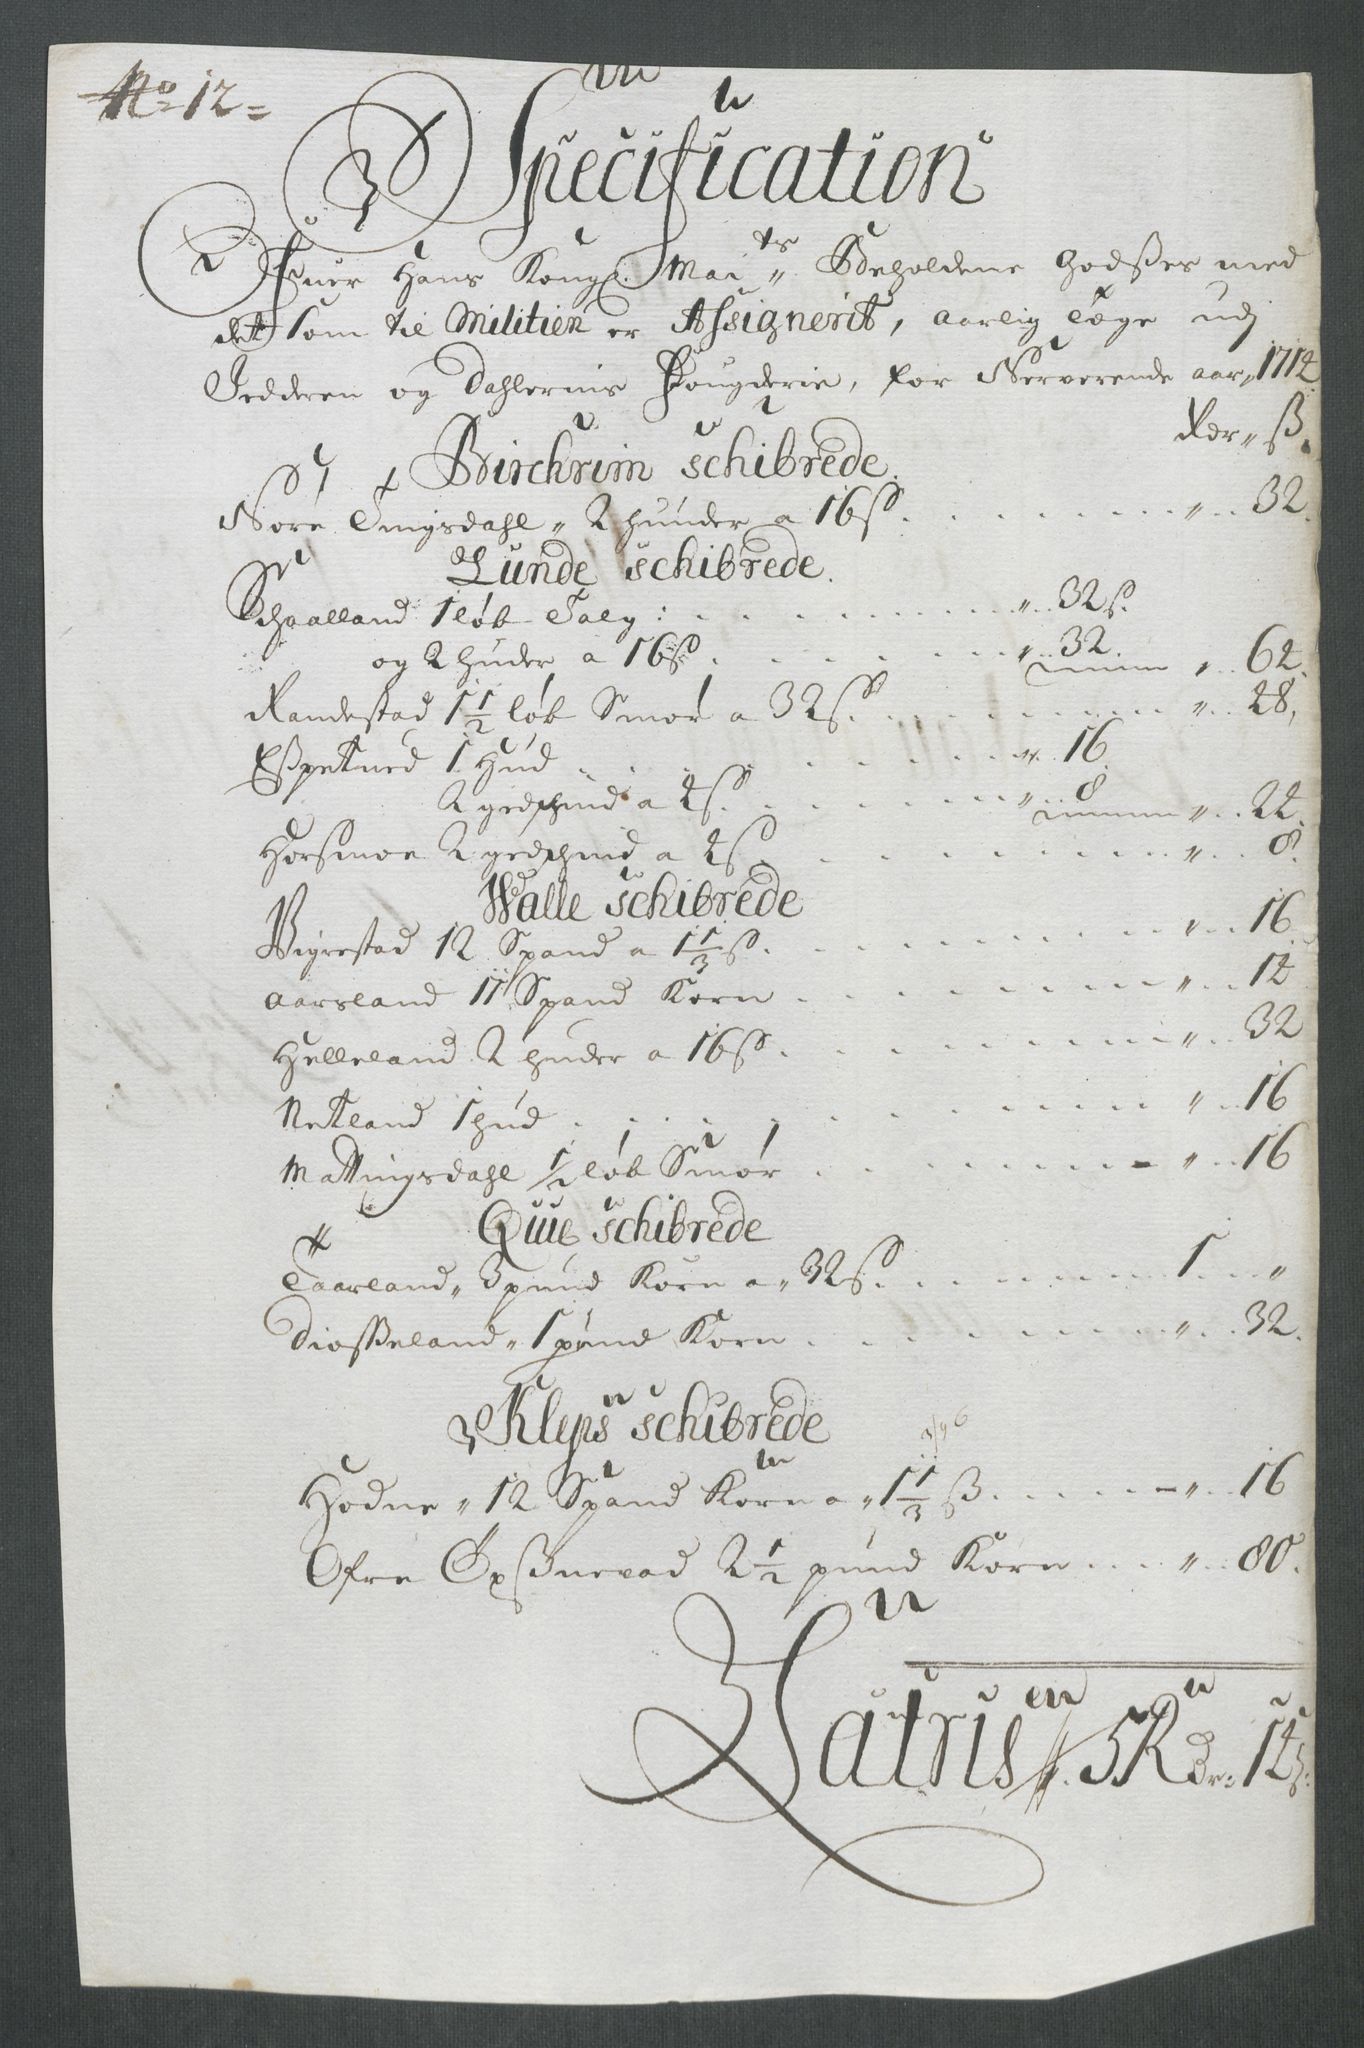 No 12
Specification
Ofuer Hans Kongl. Maits Beholdene Godsser med
det som til Militien er Assignerit, aarlig Tæge udj
Jedderen og Dahlernis Fougderie, for Nerverende aar 1714
Rdr " ß.
Birchrim schibrede.
Nore Tingsdahl " 2 huuder a 16 ß . . . " . . 32.
Lunde schibrede.
Schaalland 1 løb Talg: . . . " . . 32 ß.
og 2 huder a 16 ß . . . " . . 32. " . . 64.
Randestad 1 1/2 løb Smør a 32 ß. . . . " . . 48.
Esspetued 1 Hud . . . " . . 16.
2 gedschind a 4 ß. . . . " 8 " . . 24.
Horsmoe 2 gedschind a 4 ß . . . " . . 8.
Walle schibrede
Vigrestad 12 Spand a 1 1/3 ß. . . . " . . 16
Aarsland 11 Spand Korn . . . " . . 14
Helleland 2 huder a 16 ß. . . . " . . 32
Netland 1 hud . . . " . . 16
Mattingsdahl 1/2 løb Smør . . . " . . 16
Quie schibrede
Taarland " 3 pund Korn a " 32 ß. . . . 1 . . "
Diosseland " 1 pund Korn . . . " . . 32.
Kleps schibrede
Hodne " 12 Spand Korn a " 1 1/3 ß . . . " . . 16
Ofre Øxssnevad 2 1/2 pund Korn . . . " . . 80.
Latris 5 Rdr: 14 ß: